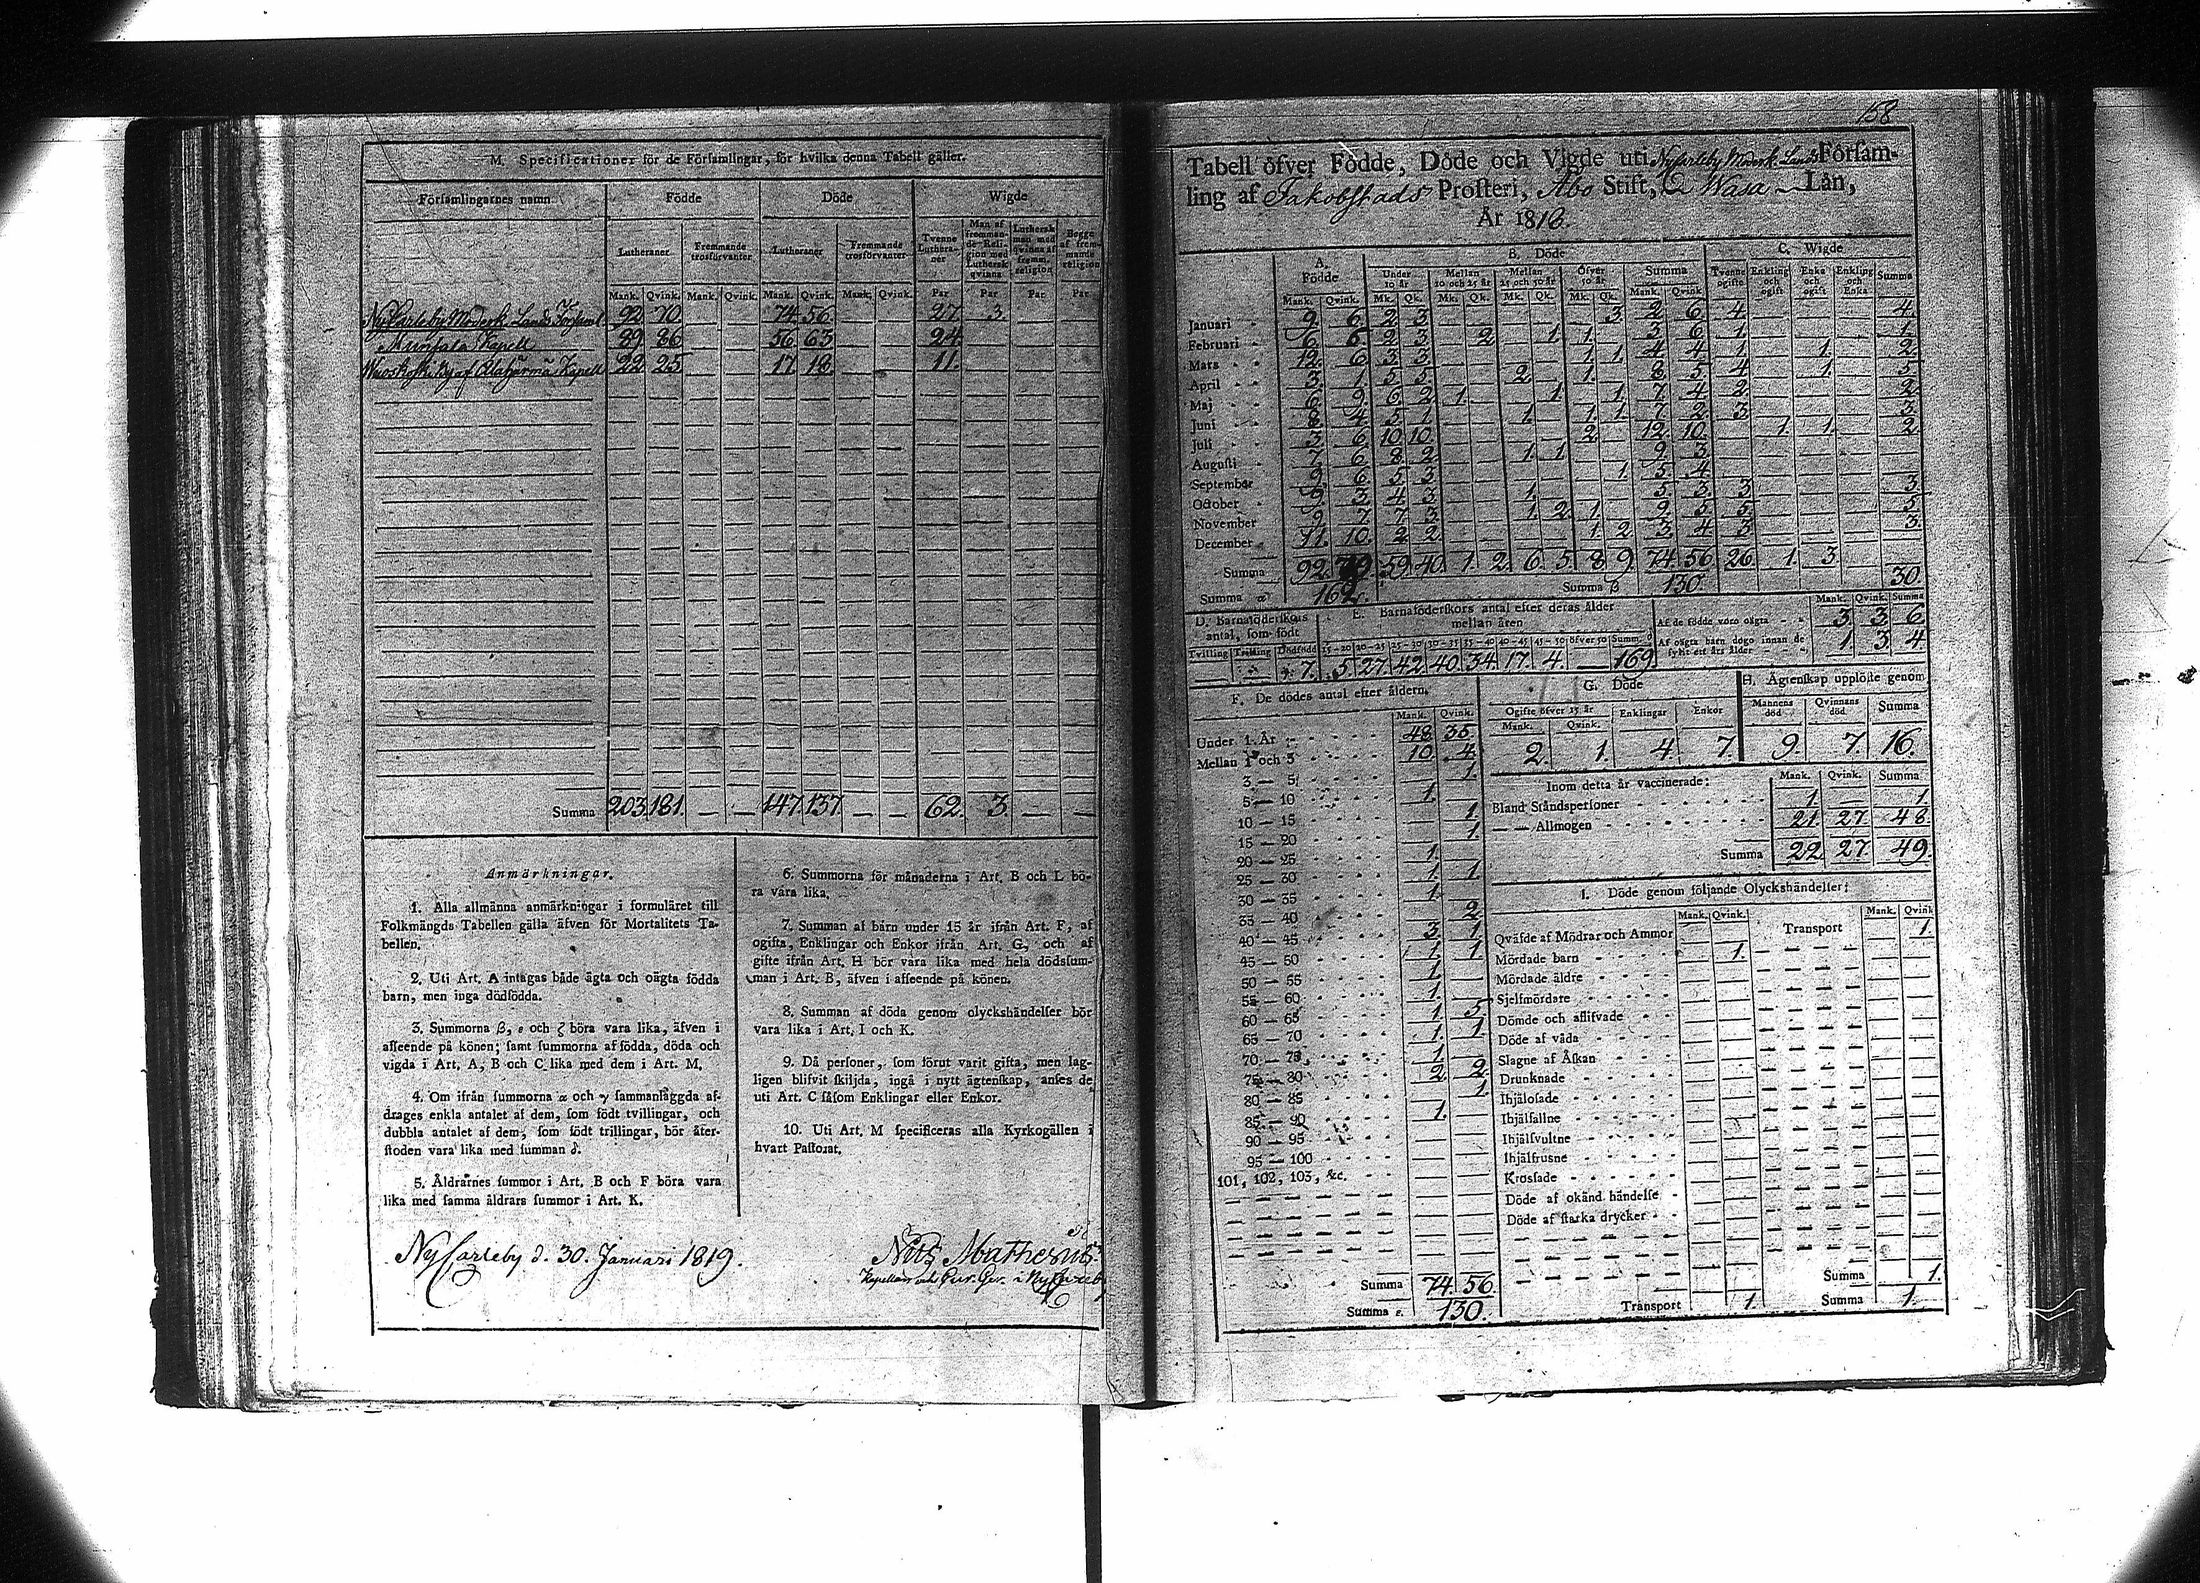 M. Specificationer för de Församlingar, för hvilka denna Tabell gäller.
Församlingarnes namn Födde Döde Wigde
Lutheraner Fremmande trosförvanter Lutheraner Fremmande trosförvanter Tvenne Lutheraner Man af fremmande Religion med Luthersk qvinna Luthersk man med qvinna af fremm. religion Begge af fremmande religion
Mank. Qvink. Mank. Qvink. Mank. Qvink. Mank. Qvink. Par Par Par Par
NyCarleby Moderk. Lands Församl. 92 70 — — 74 56 — — 27. 3 — —
Munsala Kapell 89 86 — — 56 63 — — 24. — — —
Kapell 22 25 — — 17 18 — — 11. — — —
Summa 203. 181. — — 147. 137. — — 62. 3. — —
Anmärkningar.
1. Alla allmänna anmärkningar i formuläret till
Folkmängds Tabellen gälla äfven för Mortalitets Ta-
bellen.
2. Uti Art. A intagas både ägta och oägta födda
barn, men inga dödfödda.
3. Summorna β, ε och ζ böra vara lika, äfven i
afseende på könen; samt summorna af födda, döda och
vigda i Art. A, B och C lika med dem i Art. M.
4. Om ifrån summorna α och γ sammanlaggda af-
drages enkla antalet af dem, som födt tvillingar, och
dubbla antalet af dem, som födt trillingar, bör åter-
stoden vara lika med summan δ.
5. Åldrarnes summor i Art. B och F böra vara
lika med samma åldrars summor i Art. K.
6. Summorna för månaderna i Art. B och L bö-
ra vara lika.
7. Summan af barn under 15 år ifrån Art. F, af
ogifta, Enklingar och Enkor ifrån Art. G, och af
gifte ifrån Art. H bör vara lika med hela dödssum-
man i Art. B, äfven i afseende på könen.
8. Summan af döda genom olyckshändelser bör
vara lika i Art. I och K.
9. Då personer, som förut varit gifta, men lag-
ligen blifvit skiljda, ingå i nytt ägtenskap, anses de
uti Art. C såsom Enklingar eller Enkor.
10. Uti Art. M specificeras alla Kyrkogällen i
hvart Pastorat.
NyCarleby d. 30. Januari 1819.
Nils Mathesius
158
Tabell öfver Födde, Döde och Vigde uti NyCarleby Moderk. Lands Försam-
ling af Jakobstads Prosteri, Åbo Stift, Wasa Län,
År 1816.
A. Födde B. Döde C. Wigde
Under 10 år Mellan 10 och 25 år Mellan 25 och 50 år Öfver 50 år Summa Tvenne ogifte Enkling och ogift Enka och ogift Enkling och Enka Summa
Mank. Qvink. Mk. Qk. Mk. Qk. Mk. Qk. Mk. Qk. Mank. Qvink.
Januari 9. 6. 2 3 — — — — — 3. 2 6. 4. — — — 4.
Februari 6 6. 2 3. — 2. — 1. 1. — 3. 6. 1. — — — 1.
Mars 12. 6 3 3 — — — — 1. 1. 4. 4. 1. — 1. — 2.
April 3. 1. 5 5. — — 2. — 1. — 8. 5. 4 — 1. — 5.
Maj 6. 9. 6 2 1. — — 1. — 1. 7. 4. 2. — — — 2.
Juni 8 4. 5 1. — — 1. — 1. 1. 7. 2. 3. — — — 3.
Juli 3. 6 10 10. — — — — 2. — 12. 10. — 1. 1. — 2.
Augusti 7. 6 8 2 — — 1. 1 — — 9. 3. — — — —
September 9. 6 5 3 — — — — — 1. 5. 4. — — — —
October 9. 3 4 3. — — 1. — — — 5. 3. 3 — — — 3.
November 9. 7. 7 3 — — 1. 2. 1. — 9. 5 5. — — — 5.
December 11. 10. 2 2 — — — — 1. 2 3. 4 3 — — — 3.
Summa 92. 59. 40. 1. 2. 6. 5. 8 9. 74. 56 26. 1. 3. —
Summa α 162. Summa β 130. 30.
D. Barnaföderskors antal, som födt
Tvilling Trilling Dödfödd
7.
E. Barnaföderskors antal efter deras ålder mellan åren
15—20 20—25 25—30 30—35 35—40 40—45 45—50 öfver 50 Summ. δ
5. 27. 42. 40. 34. 17. 4. — 169.
Mank. Qvink. Summa
Af de födde voro oägta 3. 3. 6
Af oägta barn dogo innan de fyllt ett års ålder 1. 3. 4
F. De dödes antal efter åldern.
Mank. Qvink.
Under 1. År 48 35.
Mellan 1 och 3 10. 4.
3 — 5 — 1.
5 — 10 1. —
10 — 15 — 1.
15 — 20 — 1.
20 — 25 1. —
25 — 30 1. 1
30 — 35 1. —
35 — 40 — 2.
40 — 45 3. 1.
45 — 50 1. 1.
50 — 55 1. —
55 — 60 1. —
60 — 65 1. 5.
65 — 70 1. 1
70 — 75 1. —
75 — 80 2. 2.
80 — 85 — 1.
85 — 90 1. —
90 — 95 — —
95 — 100 — —
101, 102, 103, &c. — —
Summa 74. 56.
Summa ε. 130.
G. Döde
Ogifte öfver 15 år Enklingar Enkor
Mank. Qvink.
2. 1. 4. 7.
H. Ägtenskap upplöste genom
Mannens död Qvinnans död Summa
9. 7. 16.
Inom detta år vaccinerade: Mank. Qvink. Summa
Bland Ståndspersoner 1. — 1.
— — Allmogen 21. 27 48
Summa 22. 27 49.
I. Döde genom följande Olyckshändelser:
Mank. Qvink. Mank. Qvink
Qväfde af Mödrar och Ammor — 1. Transport — 1.
Mördade barn
Mördade äldre
Sjelfmördare
Dömde och aflifvade
Döde af våda
Slagne af Åskan
Drunknade
Ihjälosade
Ihjälfallne
Ihjälsvultne
Ihjälfrusne
Krossade
Döde af okänd händelse
Döde af starka drycker
Summa 1.
Transport 1. Summa 1.